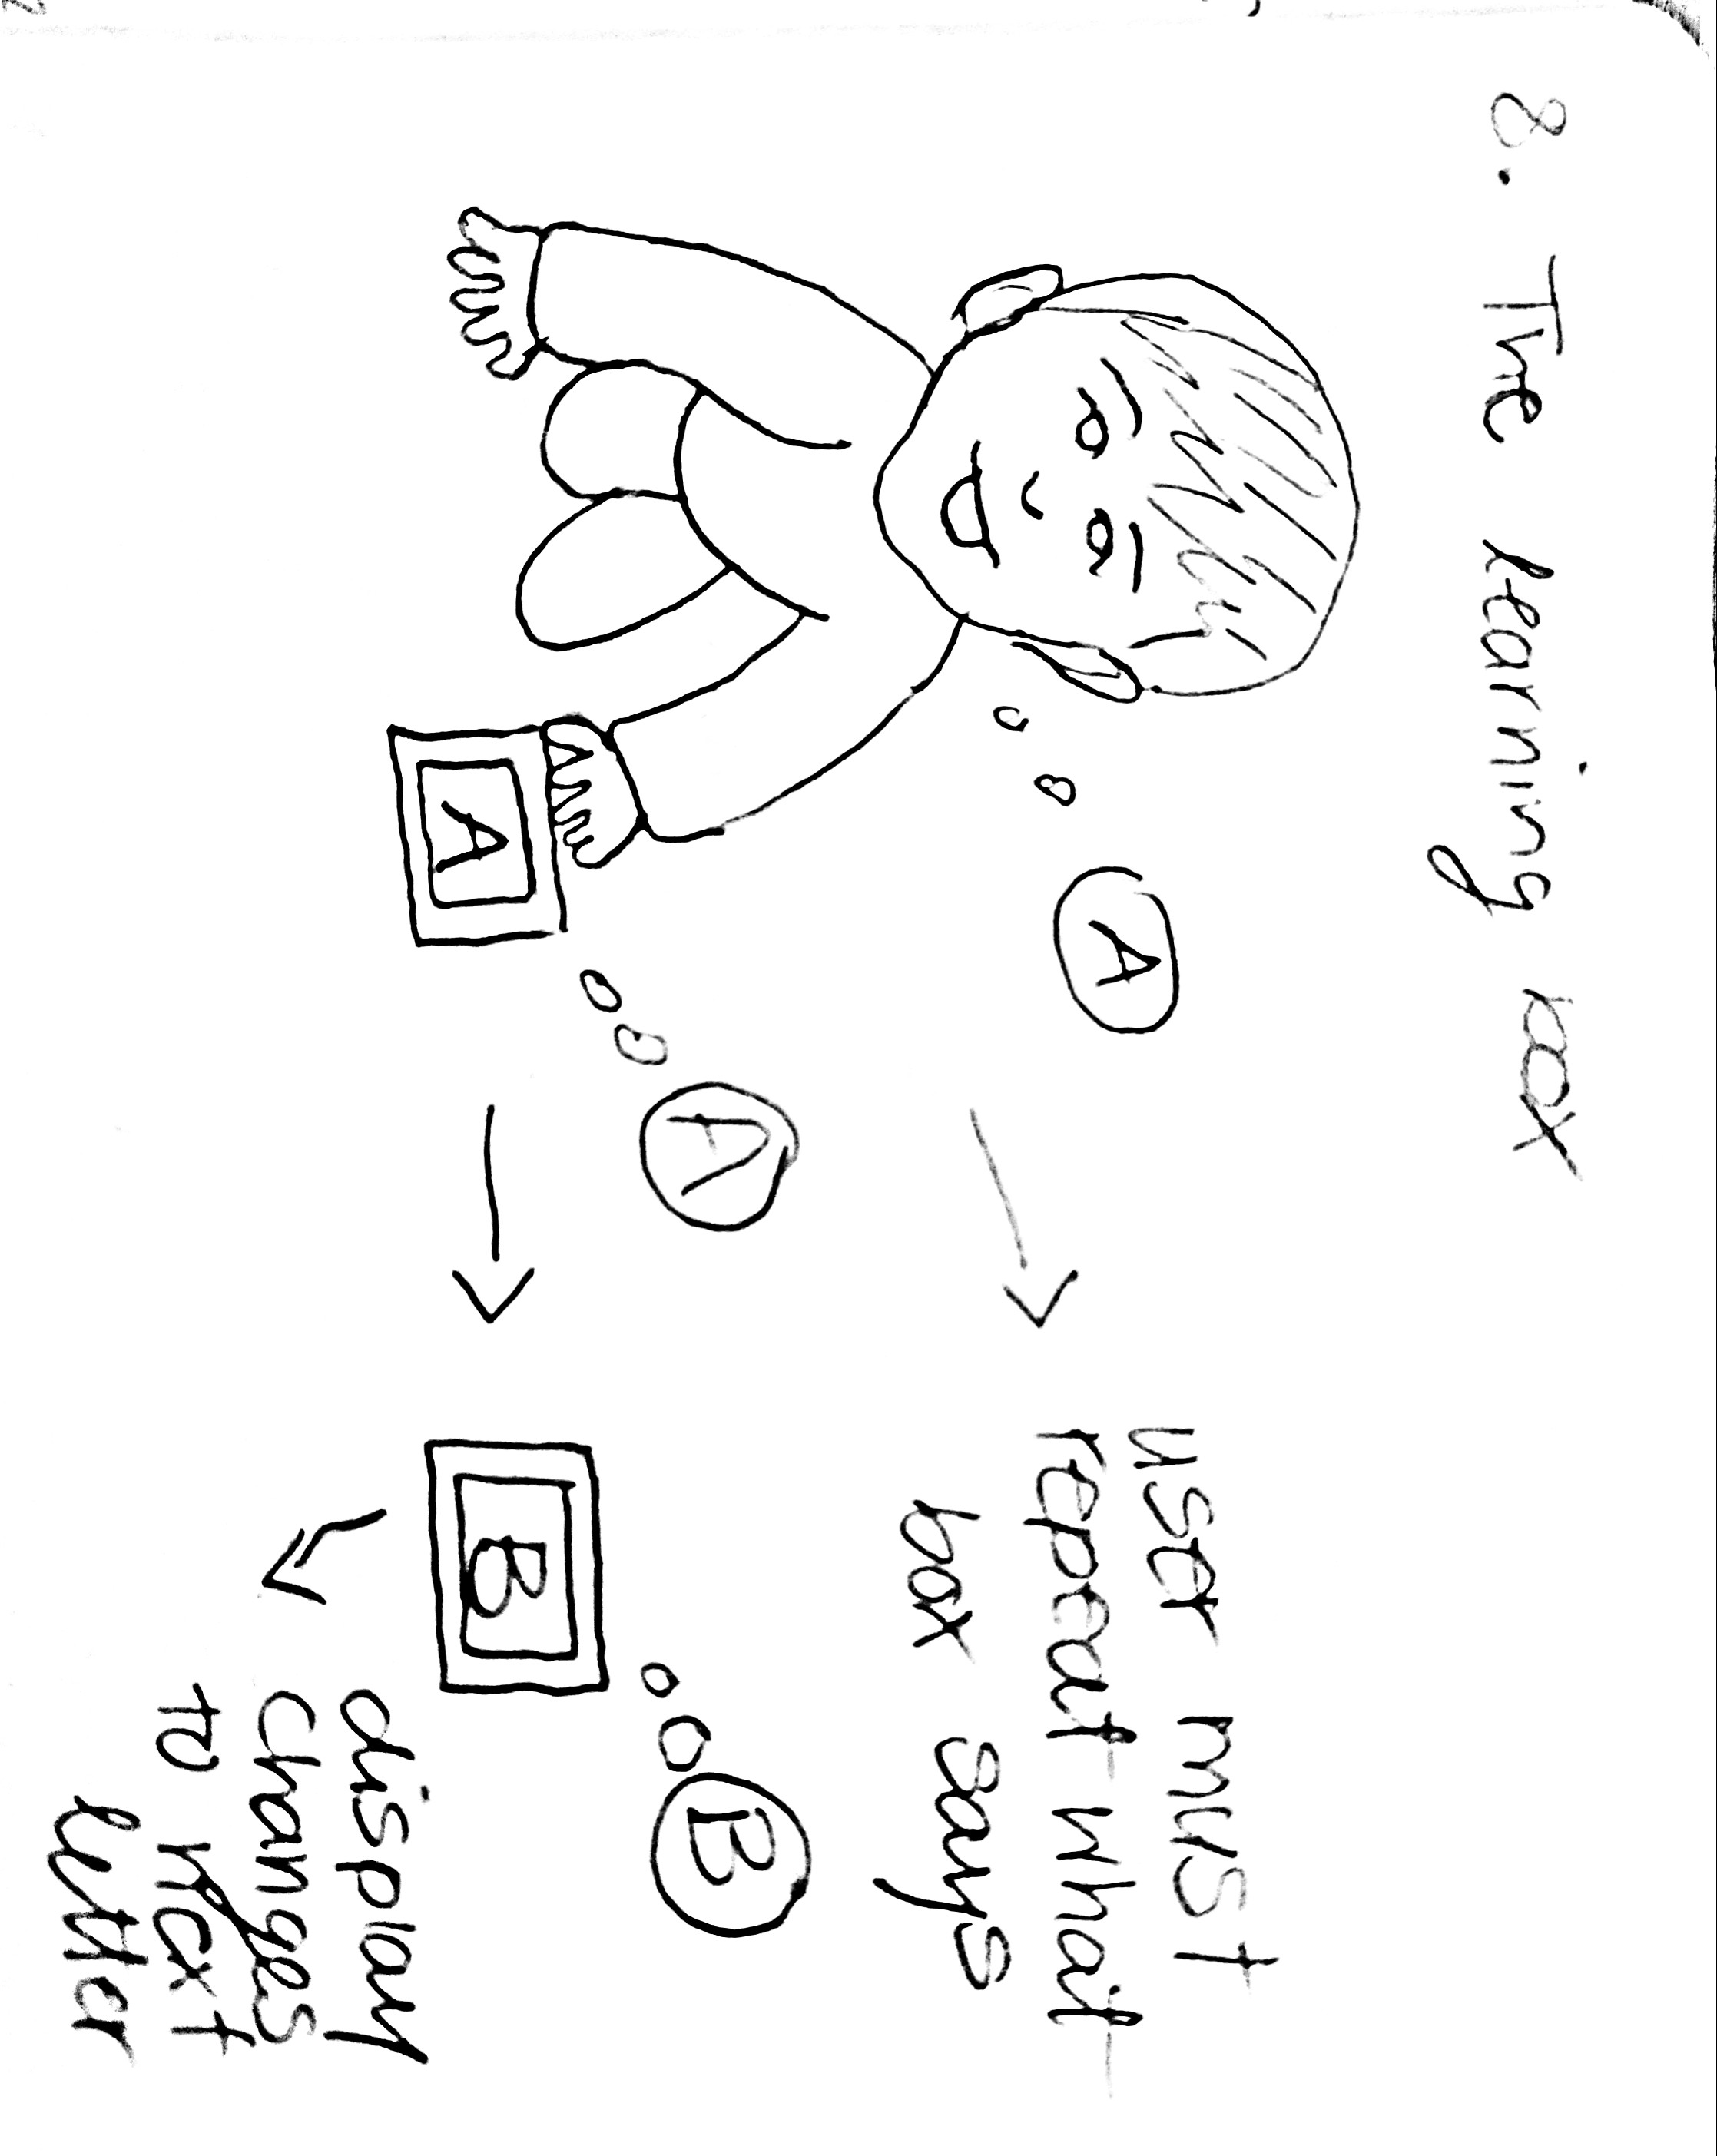 8. The learning box
A
user must
repeat what
box says
A
B
A
B
display
changes
to next
letter